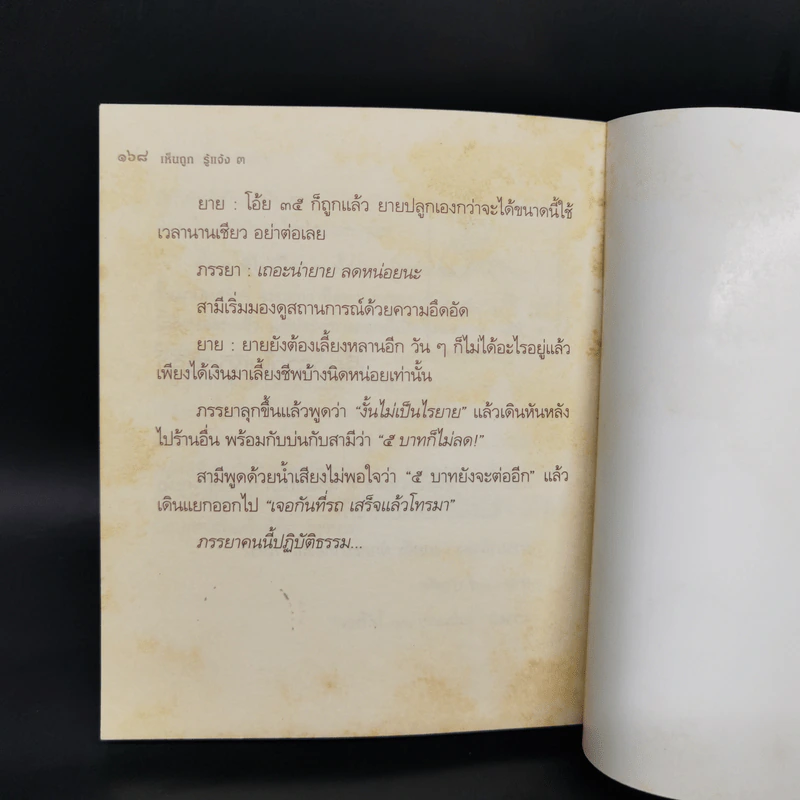 ๑๖๘ เห็นถูก รู้แจ้ง ๓
ยาย : โอ้ย ๓๕ ก็ถูกแล้ว ยายปลูกเองกว่าจะได้ขนาดนี้ใช้
เวลานานเชียว อย่าต่อเลย
ภรรยา : เถอะน่ายาย ลดหน่อยนะ
สามีเริ่มมองดูสถานการณ์ด้วยความอึดอัด
ยาย : ยายยังต้องเลี้ยงหลานอีก วัน ๆ ก็ไม่ได้อะไรอยู่แล้ว
เพียงได้เงินมาเลี้ยงชีพบ้างนิดหน่อยเท่านั้น
ภรรยาลุกขึ้นแล้วพูดว่า “งั้นไม่เป็นไรยาย” แล้วเดินหันหลัง
ไปร้านอื่น พร้อมกับบ่นกับสามีว่า “๕ บาทก็ไม่ลด!”
สามีพูดด้วยน้ำเสียงไม่พอใจว่า “๕ บาทยังจะต่ออีก” แล้ว
เดินแยกออกไป “เจอกันที่รถ เสร็จแล้วโทรมา”
ภรรยาคนนี้ปฏิบัติธรรม...